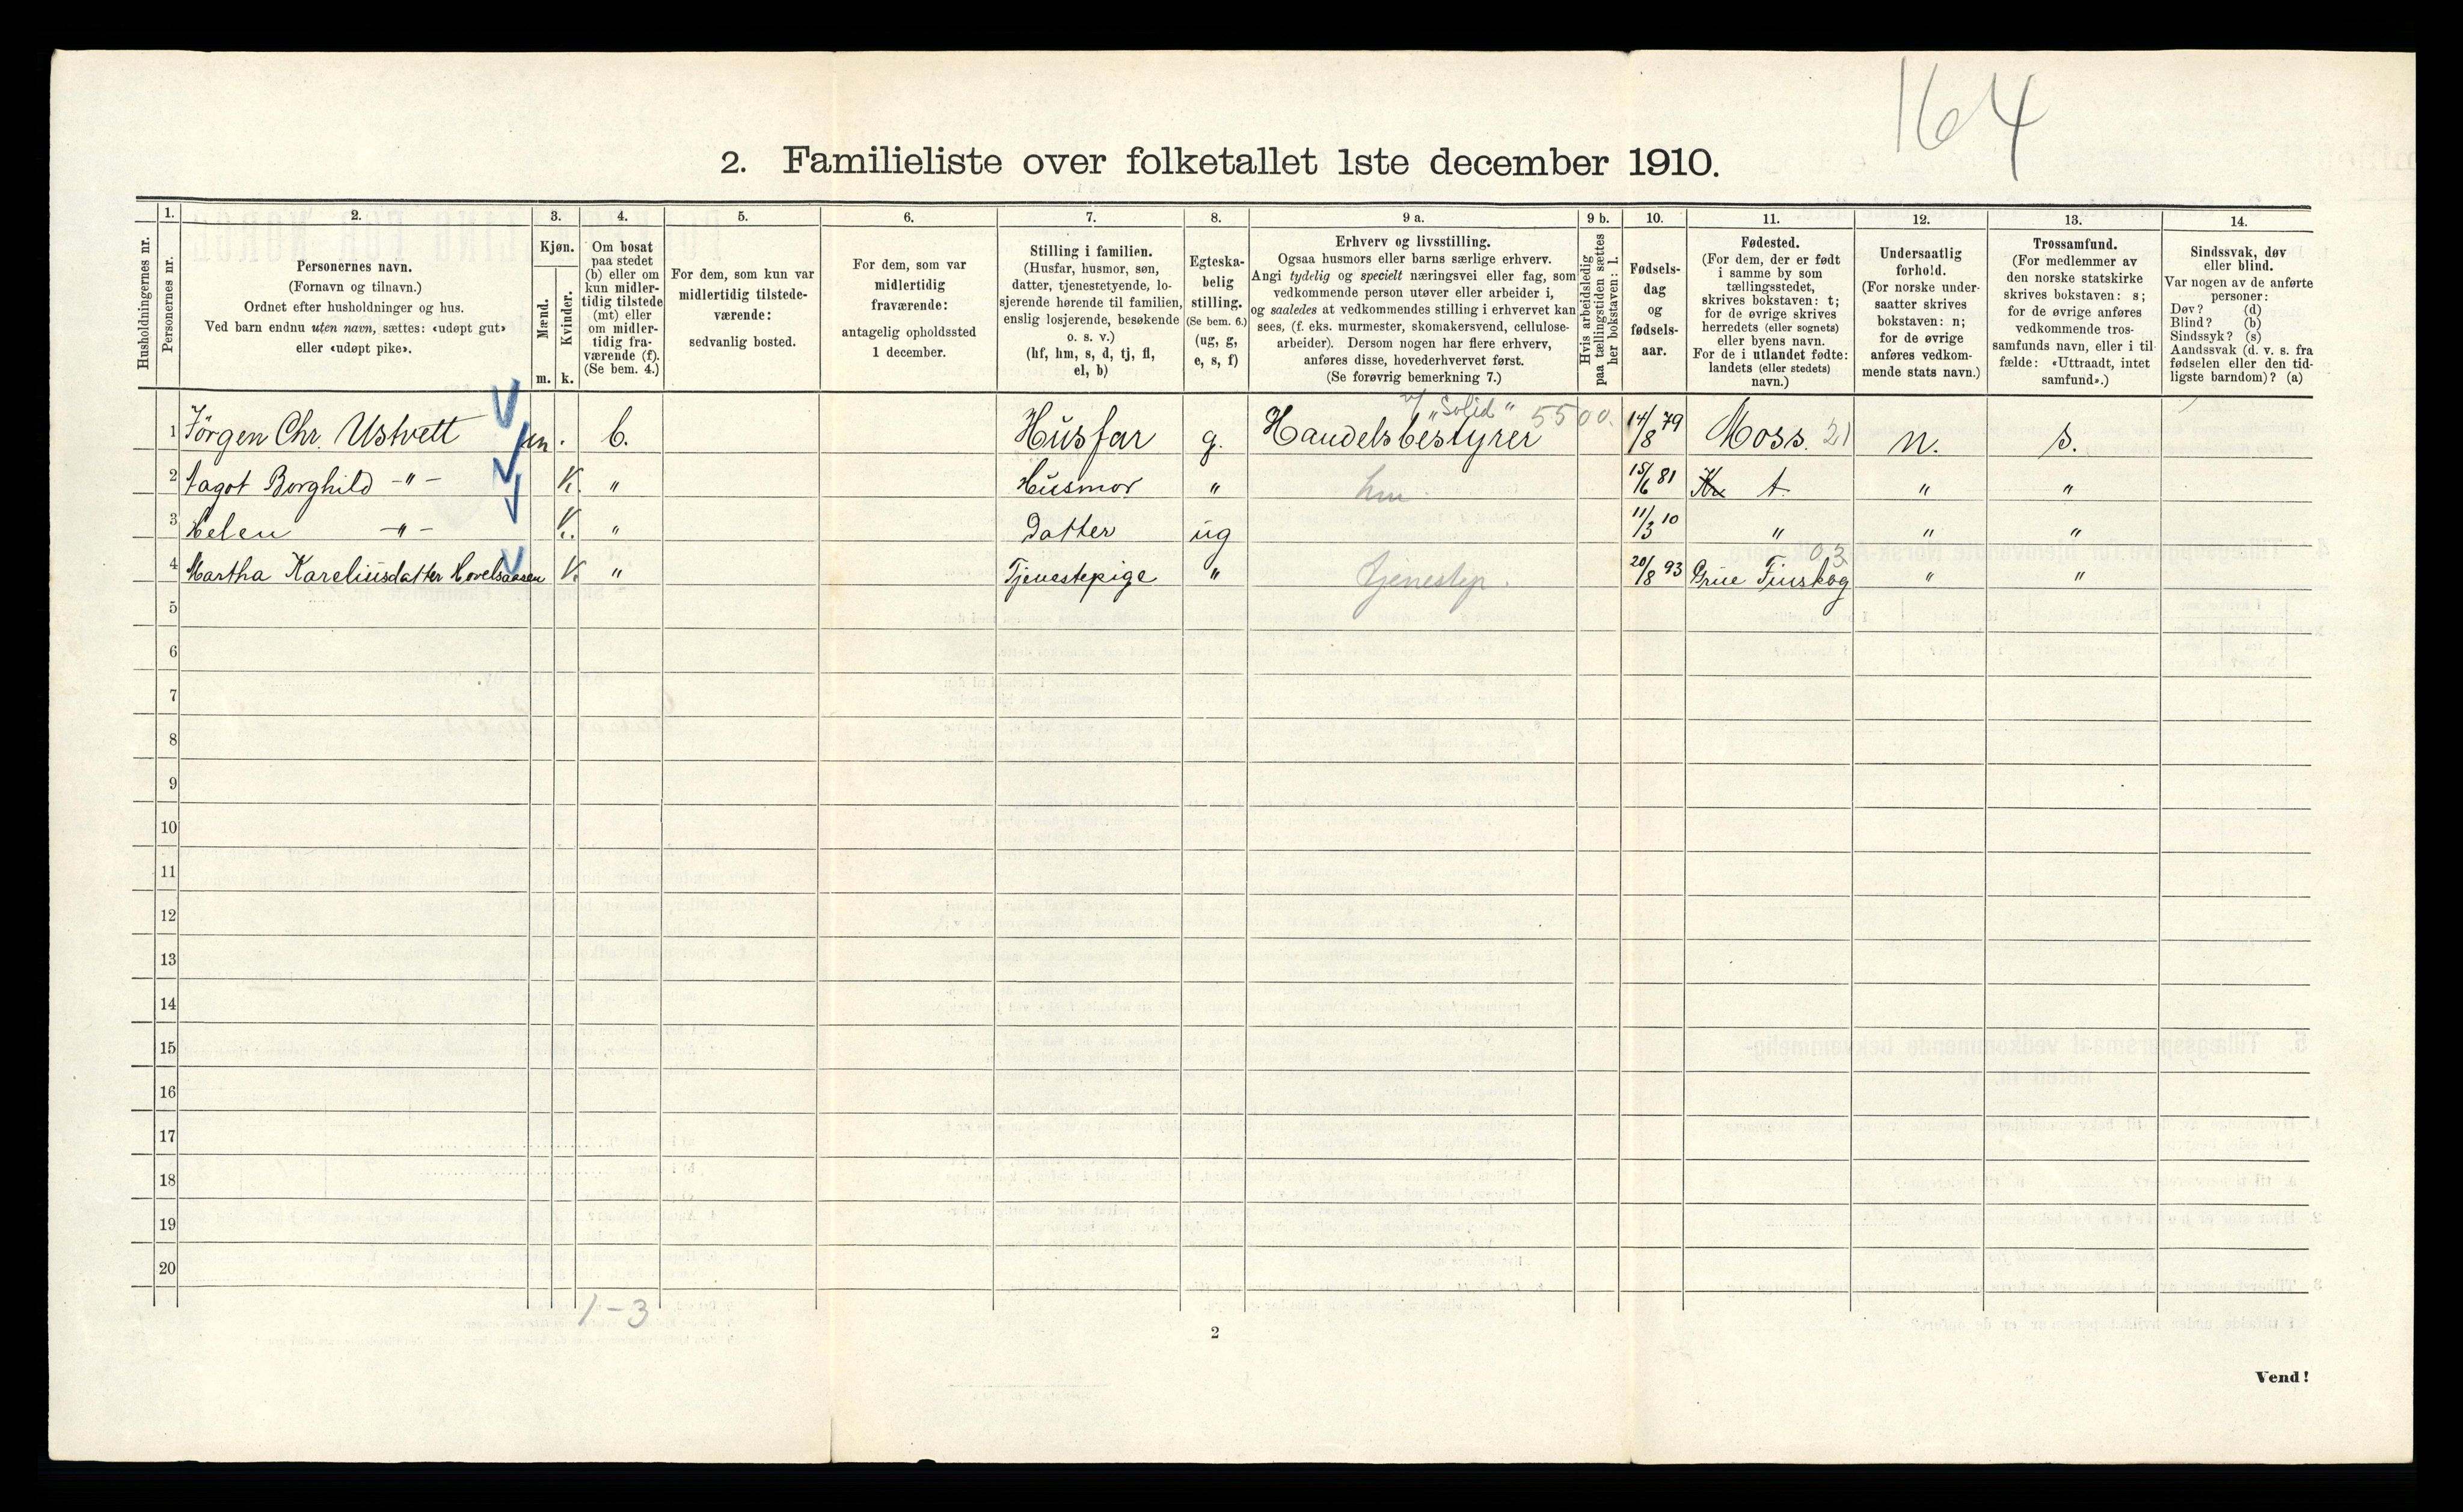 164
2. Familieliste over folketallet 1ste december 1910.
Husholdningernes nr.
1. Personernes nr.
2. Personernes navn.
(Fornavn og tilnavn.)
Ordnet efter husholdninger og hus.
Ved barn endnu uten navn, sættes: «udøpt gut»
eller «udøpt pike».
3. Kjøn.
Mænd. m.
Kvinder. k.
4. Om bosat
paa stedet
(b) eller om
kun midler-
tidig tilstede
(mt) eller
om midler-
tidig fra-
værende (f).
(Se bem. 4.)
5. For dem, som kun var
midlertidig tilstede-
værende:
sedvanlig bosted.
6. For dem, som var
midlertidig
fraværende:
antagelig opholdssted
1 december.
7. Stilling i familien.
(Husfar, husmor, søn,
datter, tjenestetyende, lo-
sjerende hørende til familien,
enslig losjerende, besøkende
o. s. v.)
(hf, hm, s, d, tj, fl,
el, b)
8. Egteska-
belig
stilling.
(Se bem. 6.)
(ug, g,
e, s, f)
9 a. Erhverv og livsstilling.
Ogsaa husmors eller barns særlige erhverv.
Angi tydelig og specielt næringsvei eller fag, som
vedkommende person utøver eller arbeider i,
og saaledes at vedkommendes stilling i erhvervet kan
sees, (f. eks. murmester, skomakersvend, cellulose-
arbeider). Dersom nogen har flere erhverv,
anføres disse, hovederhvervet først.
(Se forøvrig bemerkning 7.)
9 b. Hvis arbeidsledig
paa tællingstiden sættes
her bokstaven: l.
10. Fødsels-
dag
og
fødsels-
aar.
11. Fødested.
(For dem, der er født
i samme by som
tællingsstedet,
skrives bokstaven: t;
for de øvrige skrives
herredets (eller sognets)
eller byens navn.
For de i utlandet fødte:
landets (eller stedets)
navn.)
12. Undersaatlig
forhold.
(For norske under-
saatter skrives
bokstaven: n;
for de øvrige
anføres vedkom-
mende stats navn.)
13. Trossamfund.
(For medlemmer av
den norske statskirke
skrives bokstaven: s;
for de øvrige anføres
vedkommende tros-
samfunds navn, eller i til-
fælde: «Uttraadt, intet
samfund».)
14. Sindssvak, døv
eller blind.
Var nogen av de anførte
personer:
Døv? (d)
Blind? (b)
Sindssyk? (s)
Aandssvak (d. v. s. fra
fødselen eller den tid-
ligste barndom)? (a)
v/ "Solid" 5500.
1 Jörgen Chr. Ustvett m. b. Husfar g. Handelsbestyrer 14/8 79 Moss. 21 n. s.
2 Aagot Borghild -"- K. " Husmor " hm 15/6 81 Kr t. " "
3 Helen -"- K. " Datter ug 11/3 10 " " "
03
4 Martha Kareliusdatter Hovelsaasen K. " Tjenestepige " tjenestep. 20/8 93 Grue Finskog " "
5
6
7
8
9
10
11
12
13
14
15
16
17
18
19
20
1-3
2
Vend!